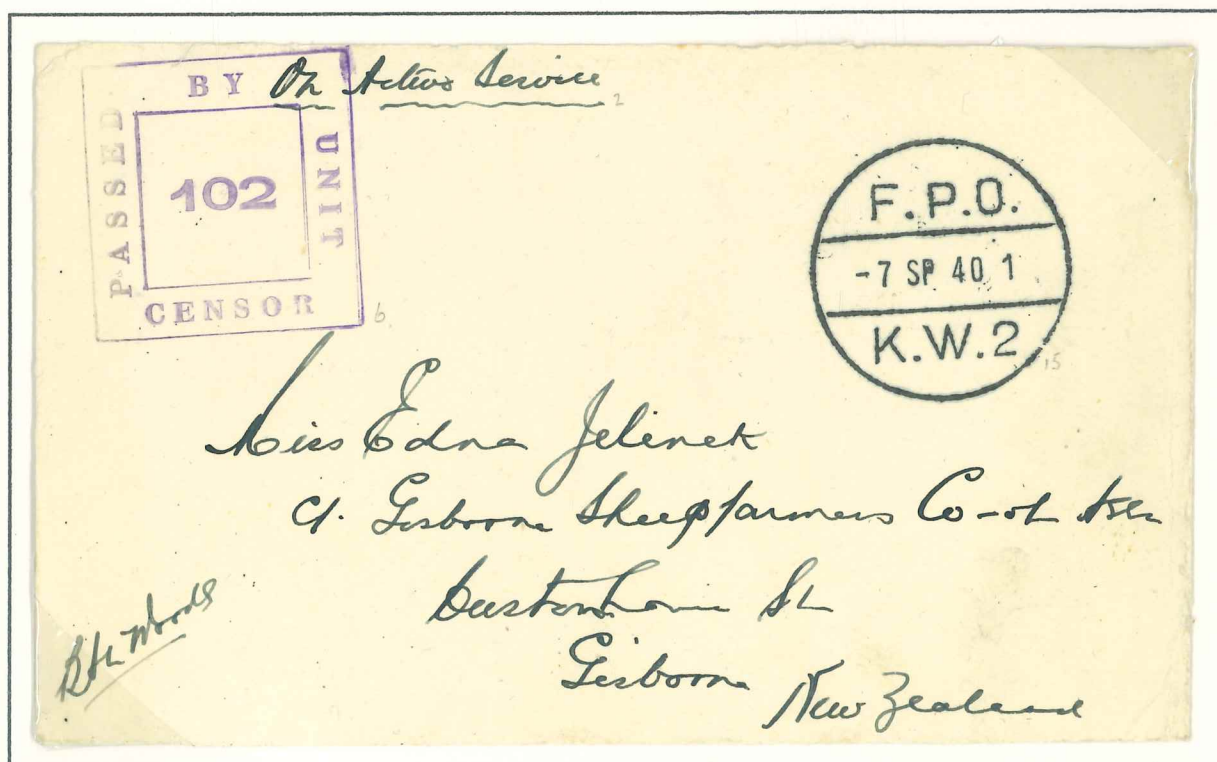 PASSED BY UNIT CENSOR
102
On Active Service
2
F.P.O.
-7 SP 40 1
K.W.2
6
15
Miss Edna Jelinek
c/. Gisborne Sheepfarmers Co-op Assn
Customhouse St
Gisborne
New Zealand
Woods